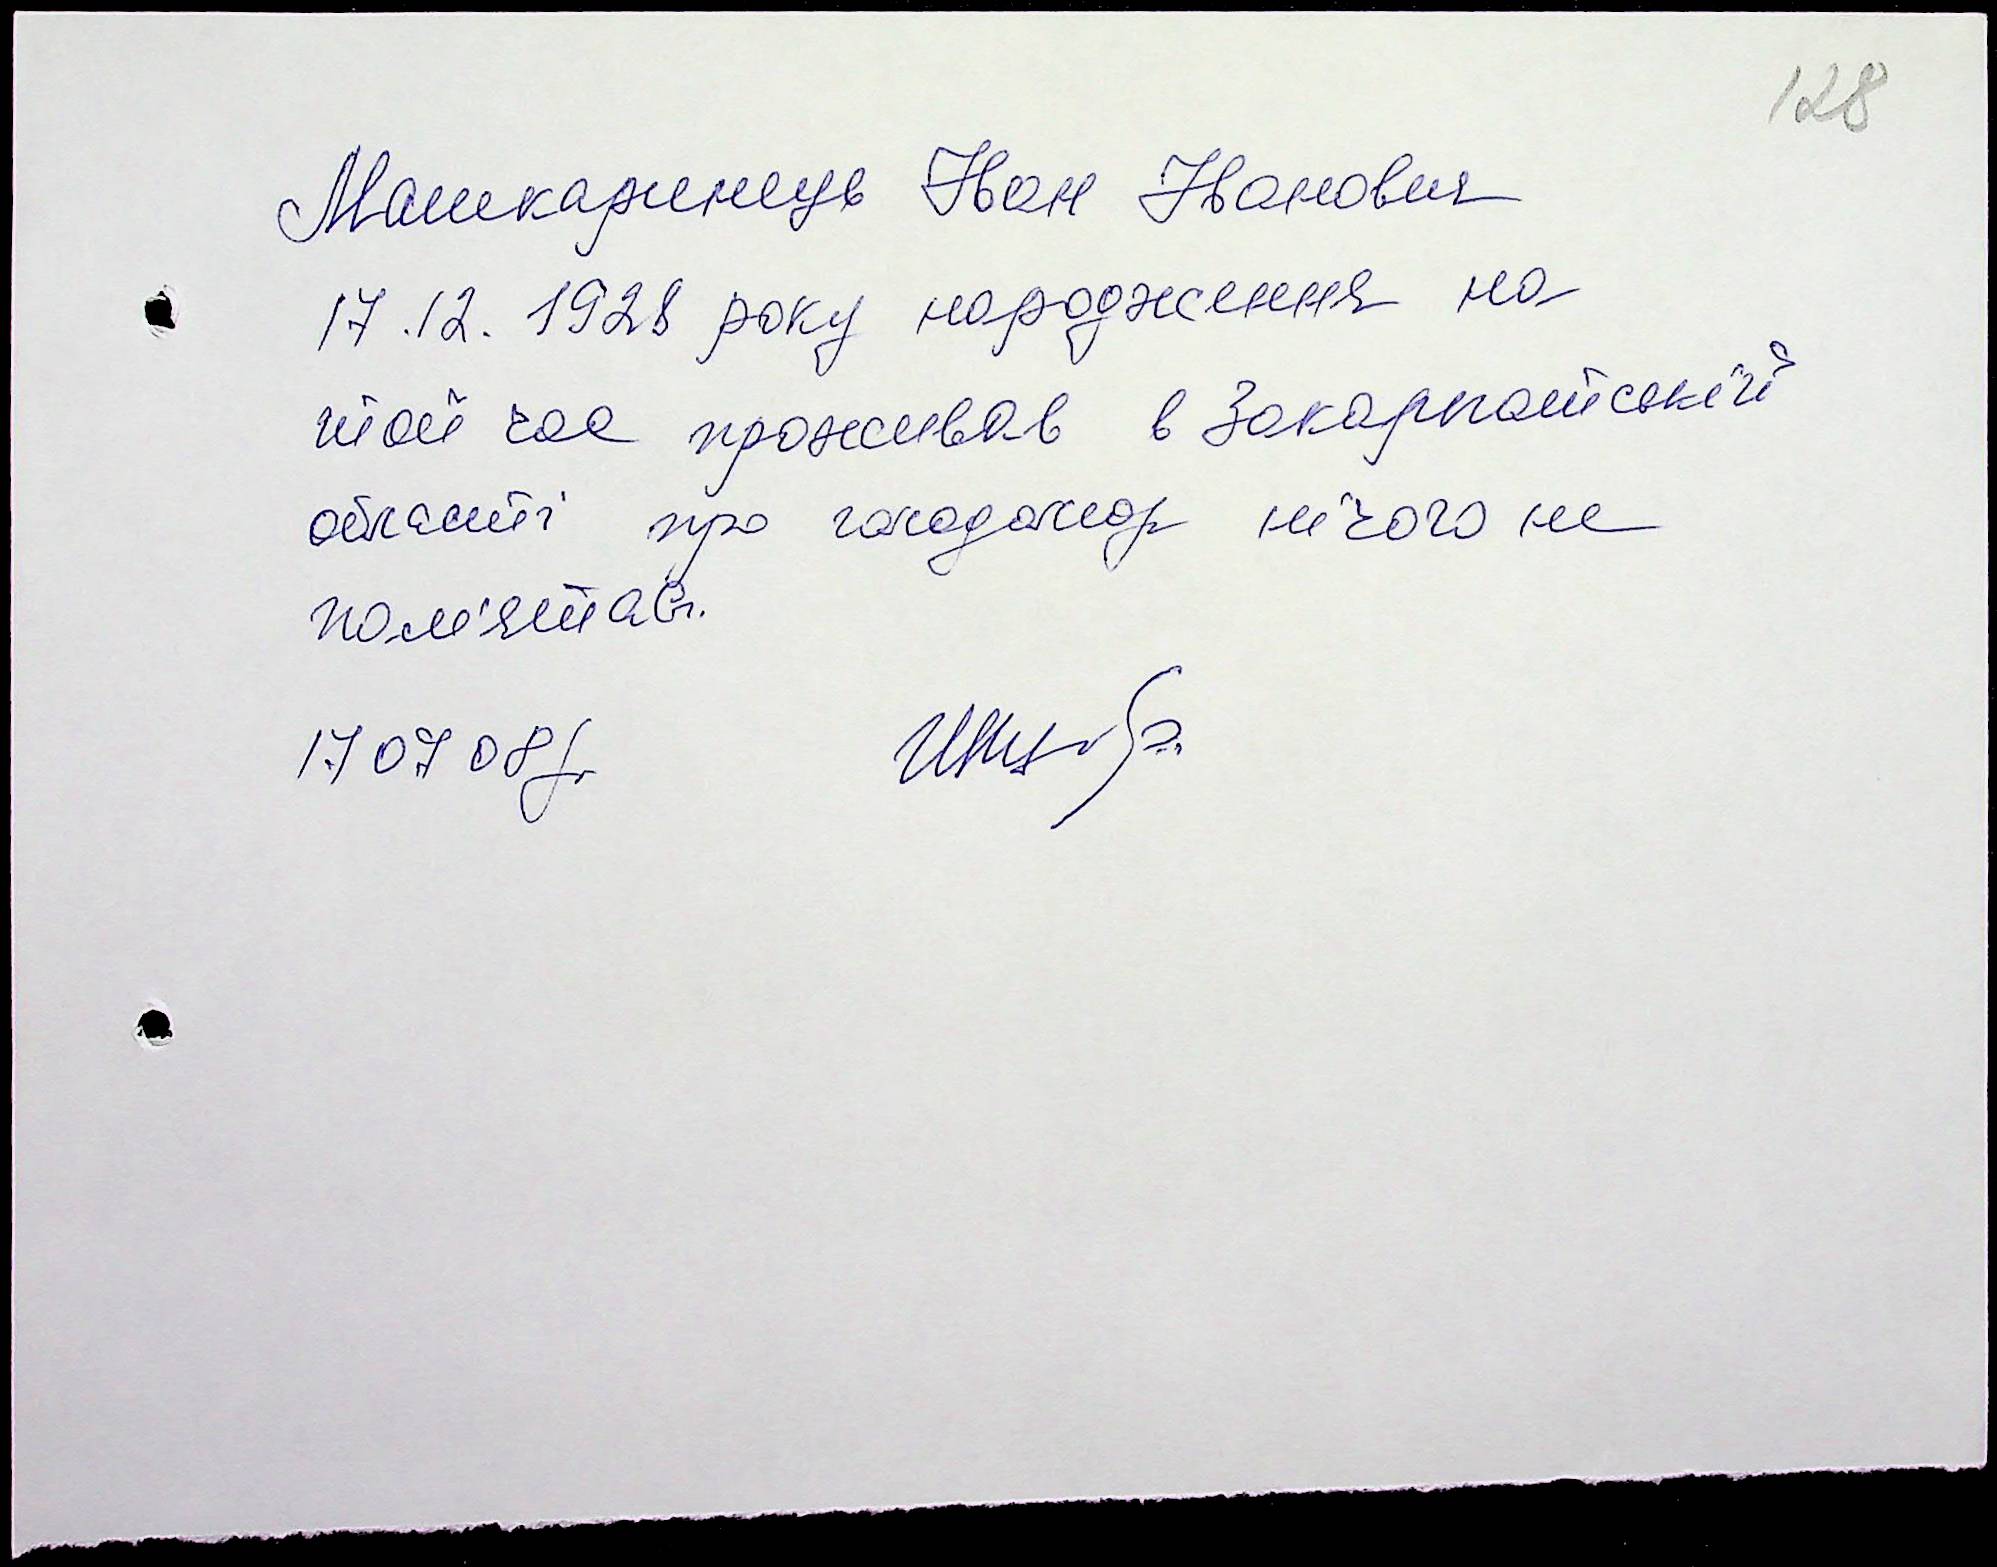 128
Машкаринець Іван Іванович
17.12.1928 року народження на
той час проживав в Закарпатській
області про голодомор нічого не
пам'ятає.
17 07 08 р.